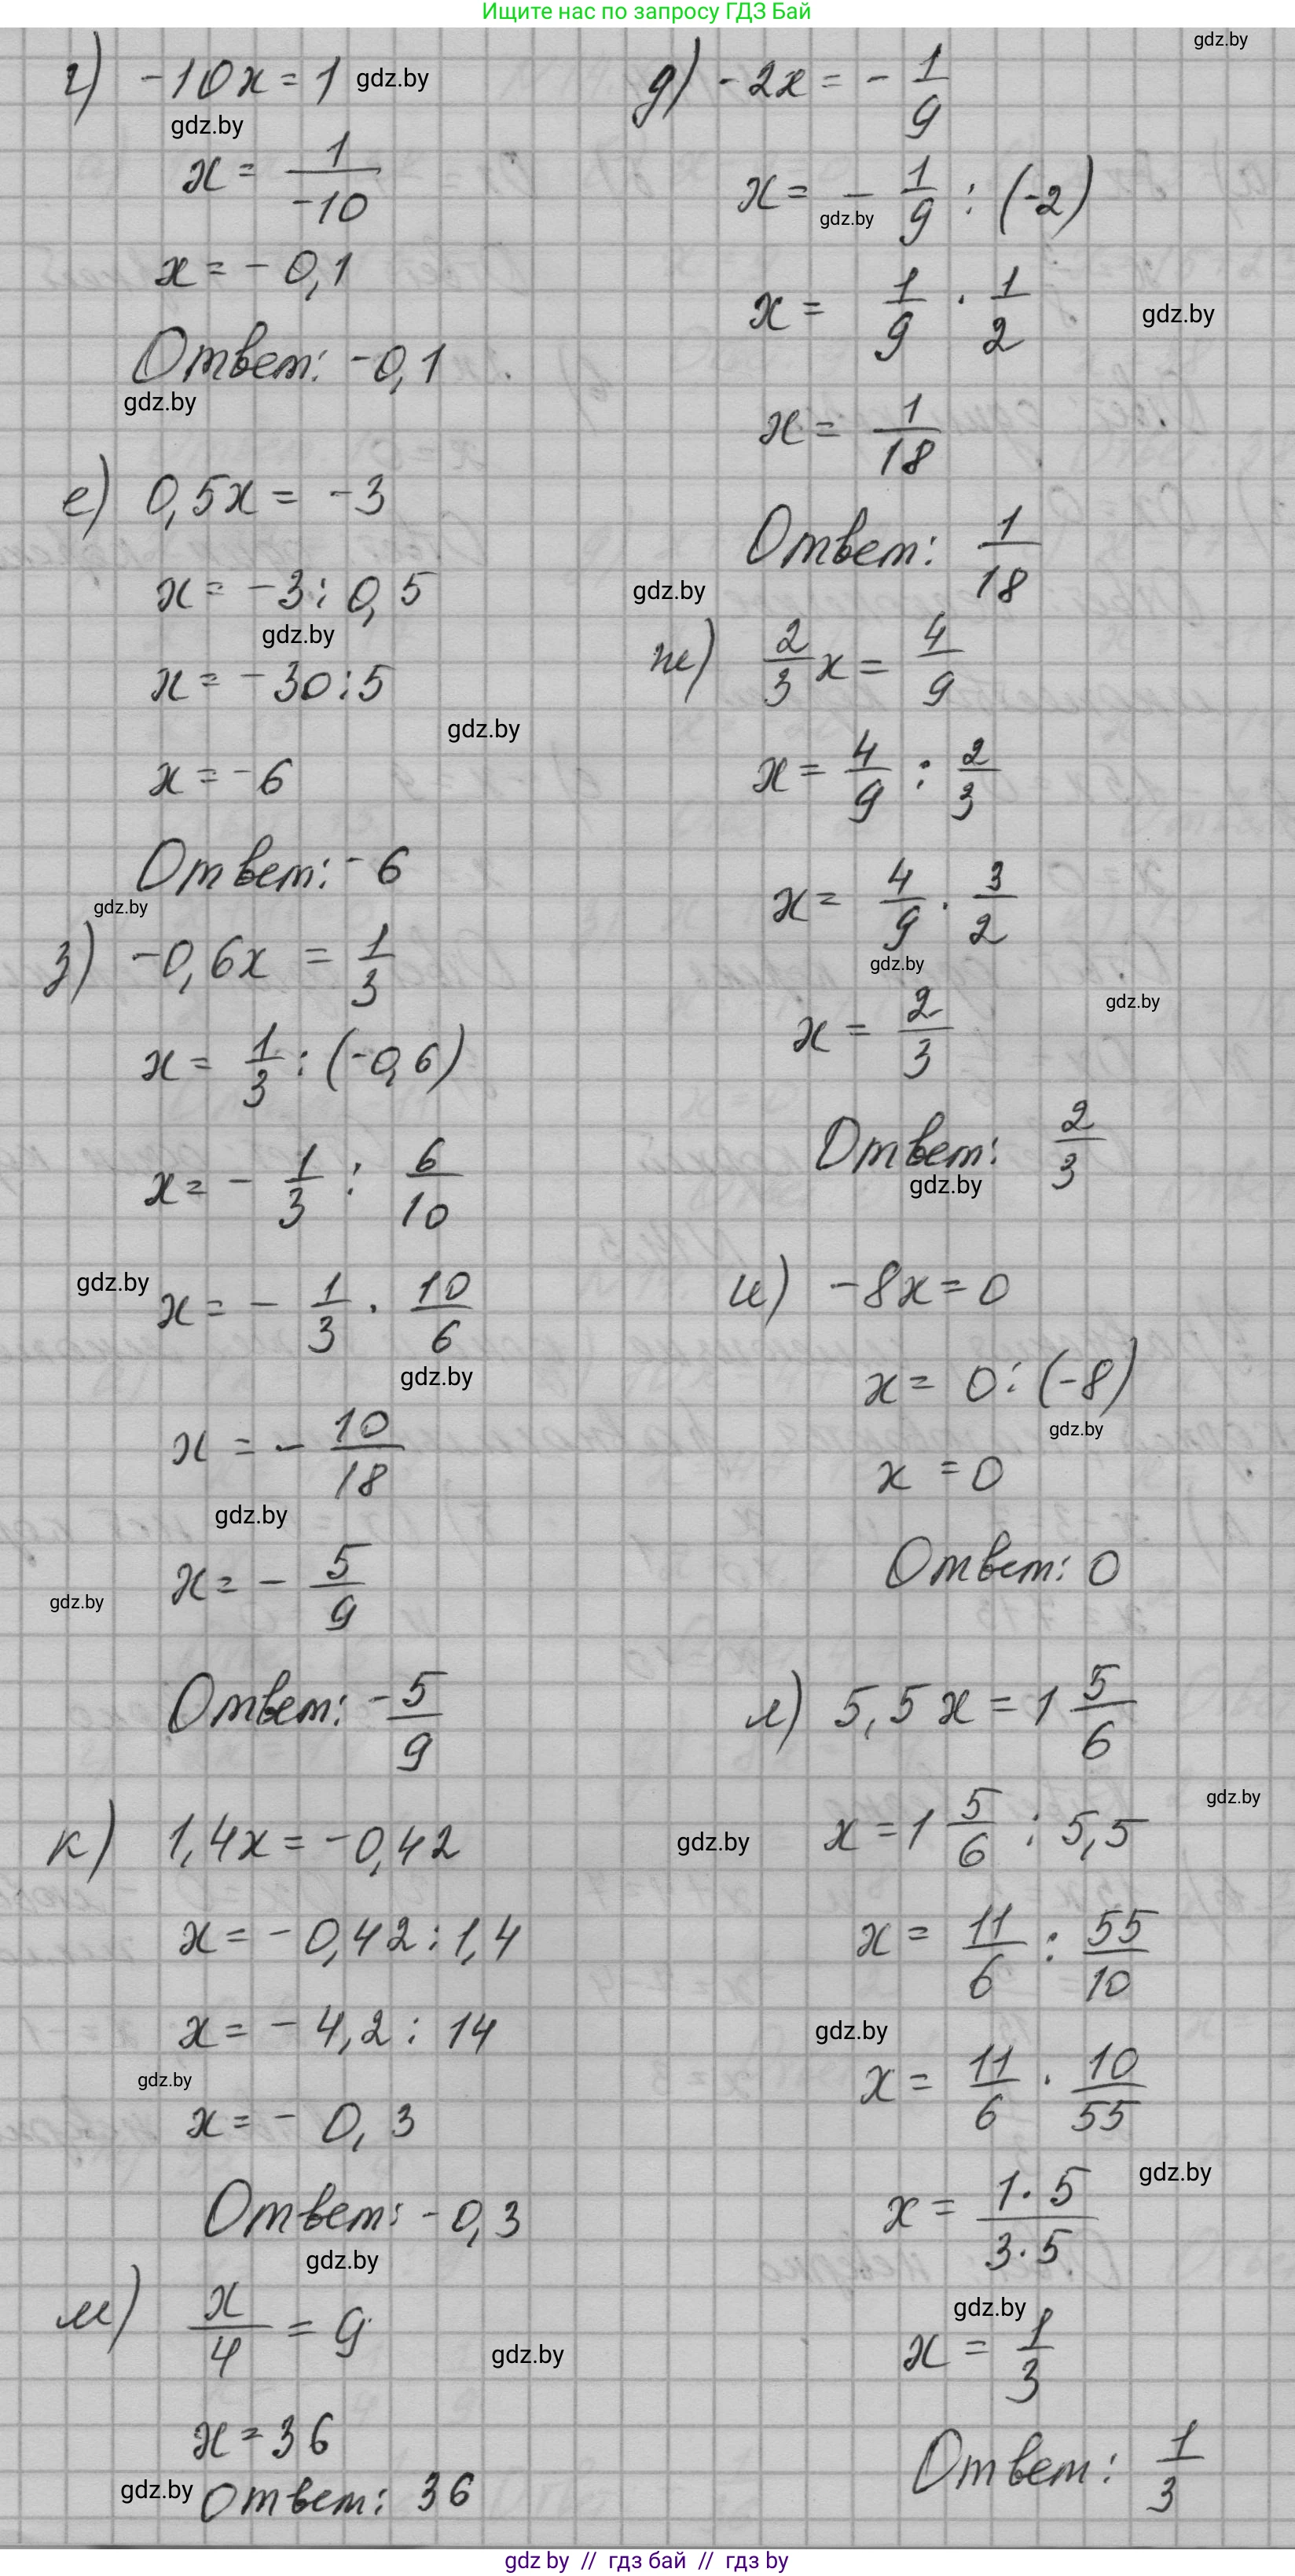 Ищите нас по запросу ГДЗ Бай
gdz.by
г) -10x = 1
gdz.by
gdz.by
x = 1/-10
x = -0,1
Ответ: -0,1
gdz.by
д) -2x = -1/9
x = -1/9 : (-2)
gdz.by
x = 1/9 · 1/2
gdz.by
x = 1/18
Ответ: 1/18
е) 0,5x = -3
x = -3 : 0,5
gdz.by
gdz.by
x = -30 : 5
gdz.by
x = -6
Ответ: -6
gdz.by
ж) 2/3 x = 4/9
x = 4/9 : 2/3
x = 4/9 · 3/2
gdz.by
gdz.by
x = 2/3
Ответ: 2/3
gdz.by
з) -0,6x = 1/3
x = 1/3 : (-0,6)
x = -1/3 : 6/10
gdz.by
x = -1/3 · 10/6
gdz.by
x = -10/18
gdz.by
x = -5/9
gdz.by
Ответ: -5/9
и) -8x = 0
x = 0 : (-8)
gdz.by
x = 0
Ответ: 0
к) 1,4x = -0,42
x = -0,42 : 1,4
x = -4,2 : 14
gdz.by
x = -0,3
Ответ: -0,3
gdz.by
л) 5,5x = 1 5/6
gdz.by
gdz.by
x = 1 5/6 : 5,5
x = 11/6 : 55/10
gdz.by
x = 11/6 · 10/55
gdz.by
x = 1·5/3·5
gdz.by
x = 1/3
Ответ: 1/3
м) x/4 = 9
gdz.by
x = 36
gdz.by
Ответ: 36
gdz by // гдз бай // гдз by